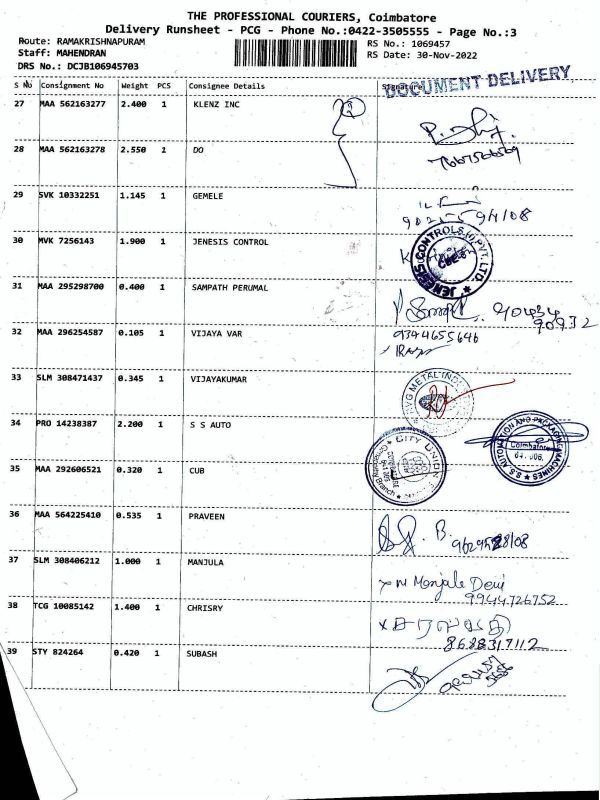 THE PROFESSIONAL COURIERS, Coimbatore
Delivery Runsheet - PCG - Phone No.:0422-3505555 - Page No.:3
Route: RAMAKRISHNAPURAM RS No.: 1069457
Staff: MAHENDRAN RS Date: 30-Nov-2022
DRS No.: DCJB106945703
DOCUMENT DELIVERY
S No Consignment No Weight PCS Consignee Details Signature
27 MAA 562163277 2.400 1 KLENZ INC
28 MAA 562163278 2.550 1 DO
29 SVK 10332251 1.145 1 GEMELE
30 MVK 7256143 1.900 1 JENESIS CONTROL
JENESIS CONTROLS (I) PVT. LTD.
31 MAA 295298700 0.400 1 SAMPATH PERUMAL
32 MAA 296254587 0.105 1 VIJAYA VAR 9344655646
33 SLM 308471437 0.345 1 VIJAYAKUMAR
34 PRO 14238387 2.200 1 S S AUTO
S.S. AUTOMATION AND PACKAGING MACHINES
Coimbatore
CITY UNION
35 MAA 292606521 0.320 1 CUB
36 MAA 564225410 0.535 1 PRAVEEN
37 SLM 308406212 1.000 1 MANJULA Manjula Devi
9944726752
38 TCG 10085142 1.400 1 CHRISRY
8688317112
39 STY 824264 0.420 1 SUBASH